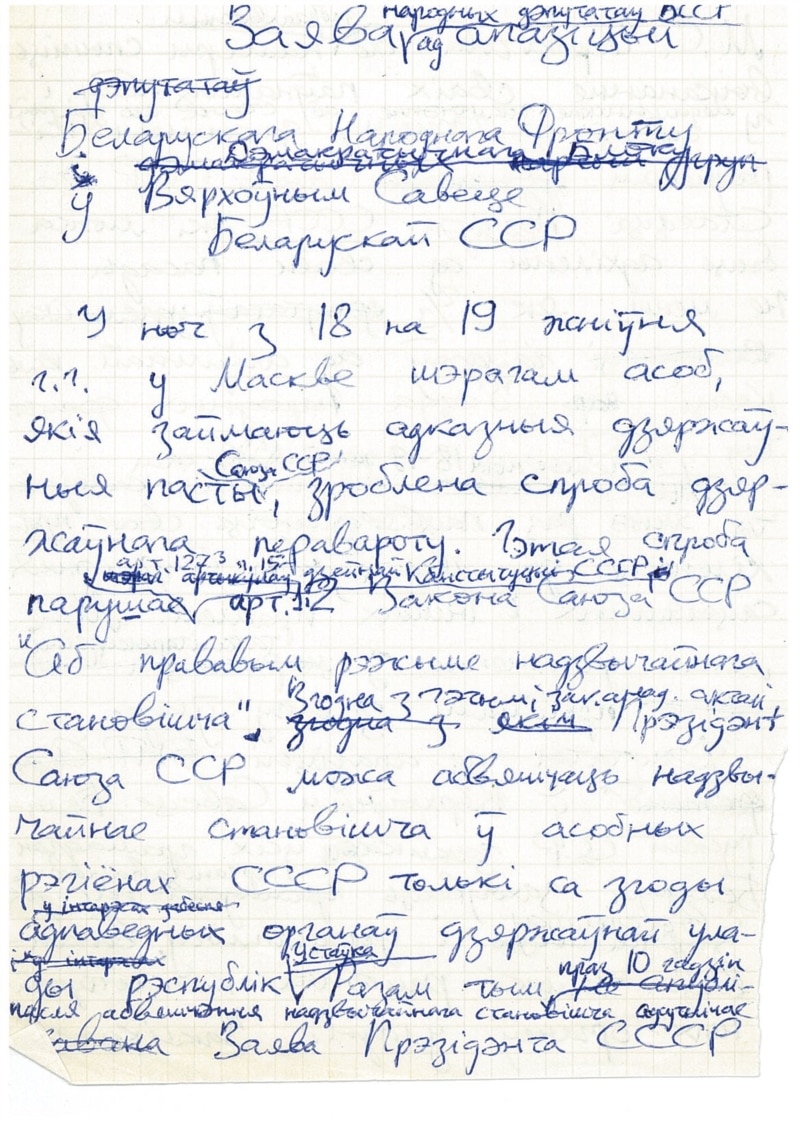 народных дэпутатаў БССР
Заява ад апазіцыі
дэпутатаў
Беларускага Народнага Фронту
Дэмакратычнага
ў Вярхоўным Савеце
Беларускай ССР
У ноч з 18 на 19 жніўня
г.г. у Маскве шэрагам асоб,
якія займаюць адказныя дзяржаў-
Саюза ССР
ныя пасты, зроблена спроба дзяр-
жаўнага перавароту. Гэтая спроба
арт. 127.3 п. 15 дзеючай Канстытуцыі СССР і
парушае арт. 1, 2 Закона Саюза ССР
"Аб прававым рэжыме надзвычайнага
Згодна з гэтымі зак.анад. актамі
становішча". згодна з якім Прэзідэнт
Саюза ССР можа абвяшчаць надзвы-
чайнае становішча ў асобных
рэгіёнах СССР толькі са згоды
у інтарэсах
адпаведных органаў дзяржаўнай ула-
у інтарэсах Устаўка
ды рэспублік Разам тым праз 10 гадзін
пасля абвяшчэння надзвычайнага становішча адсутнічае
Заява Прэзідэнта СССР